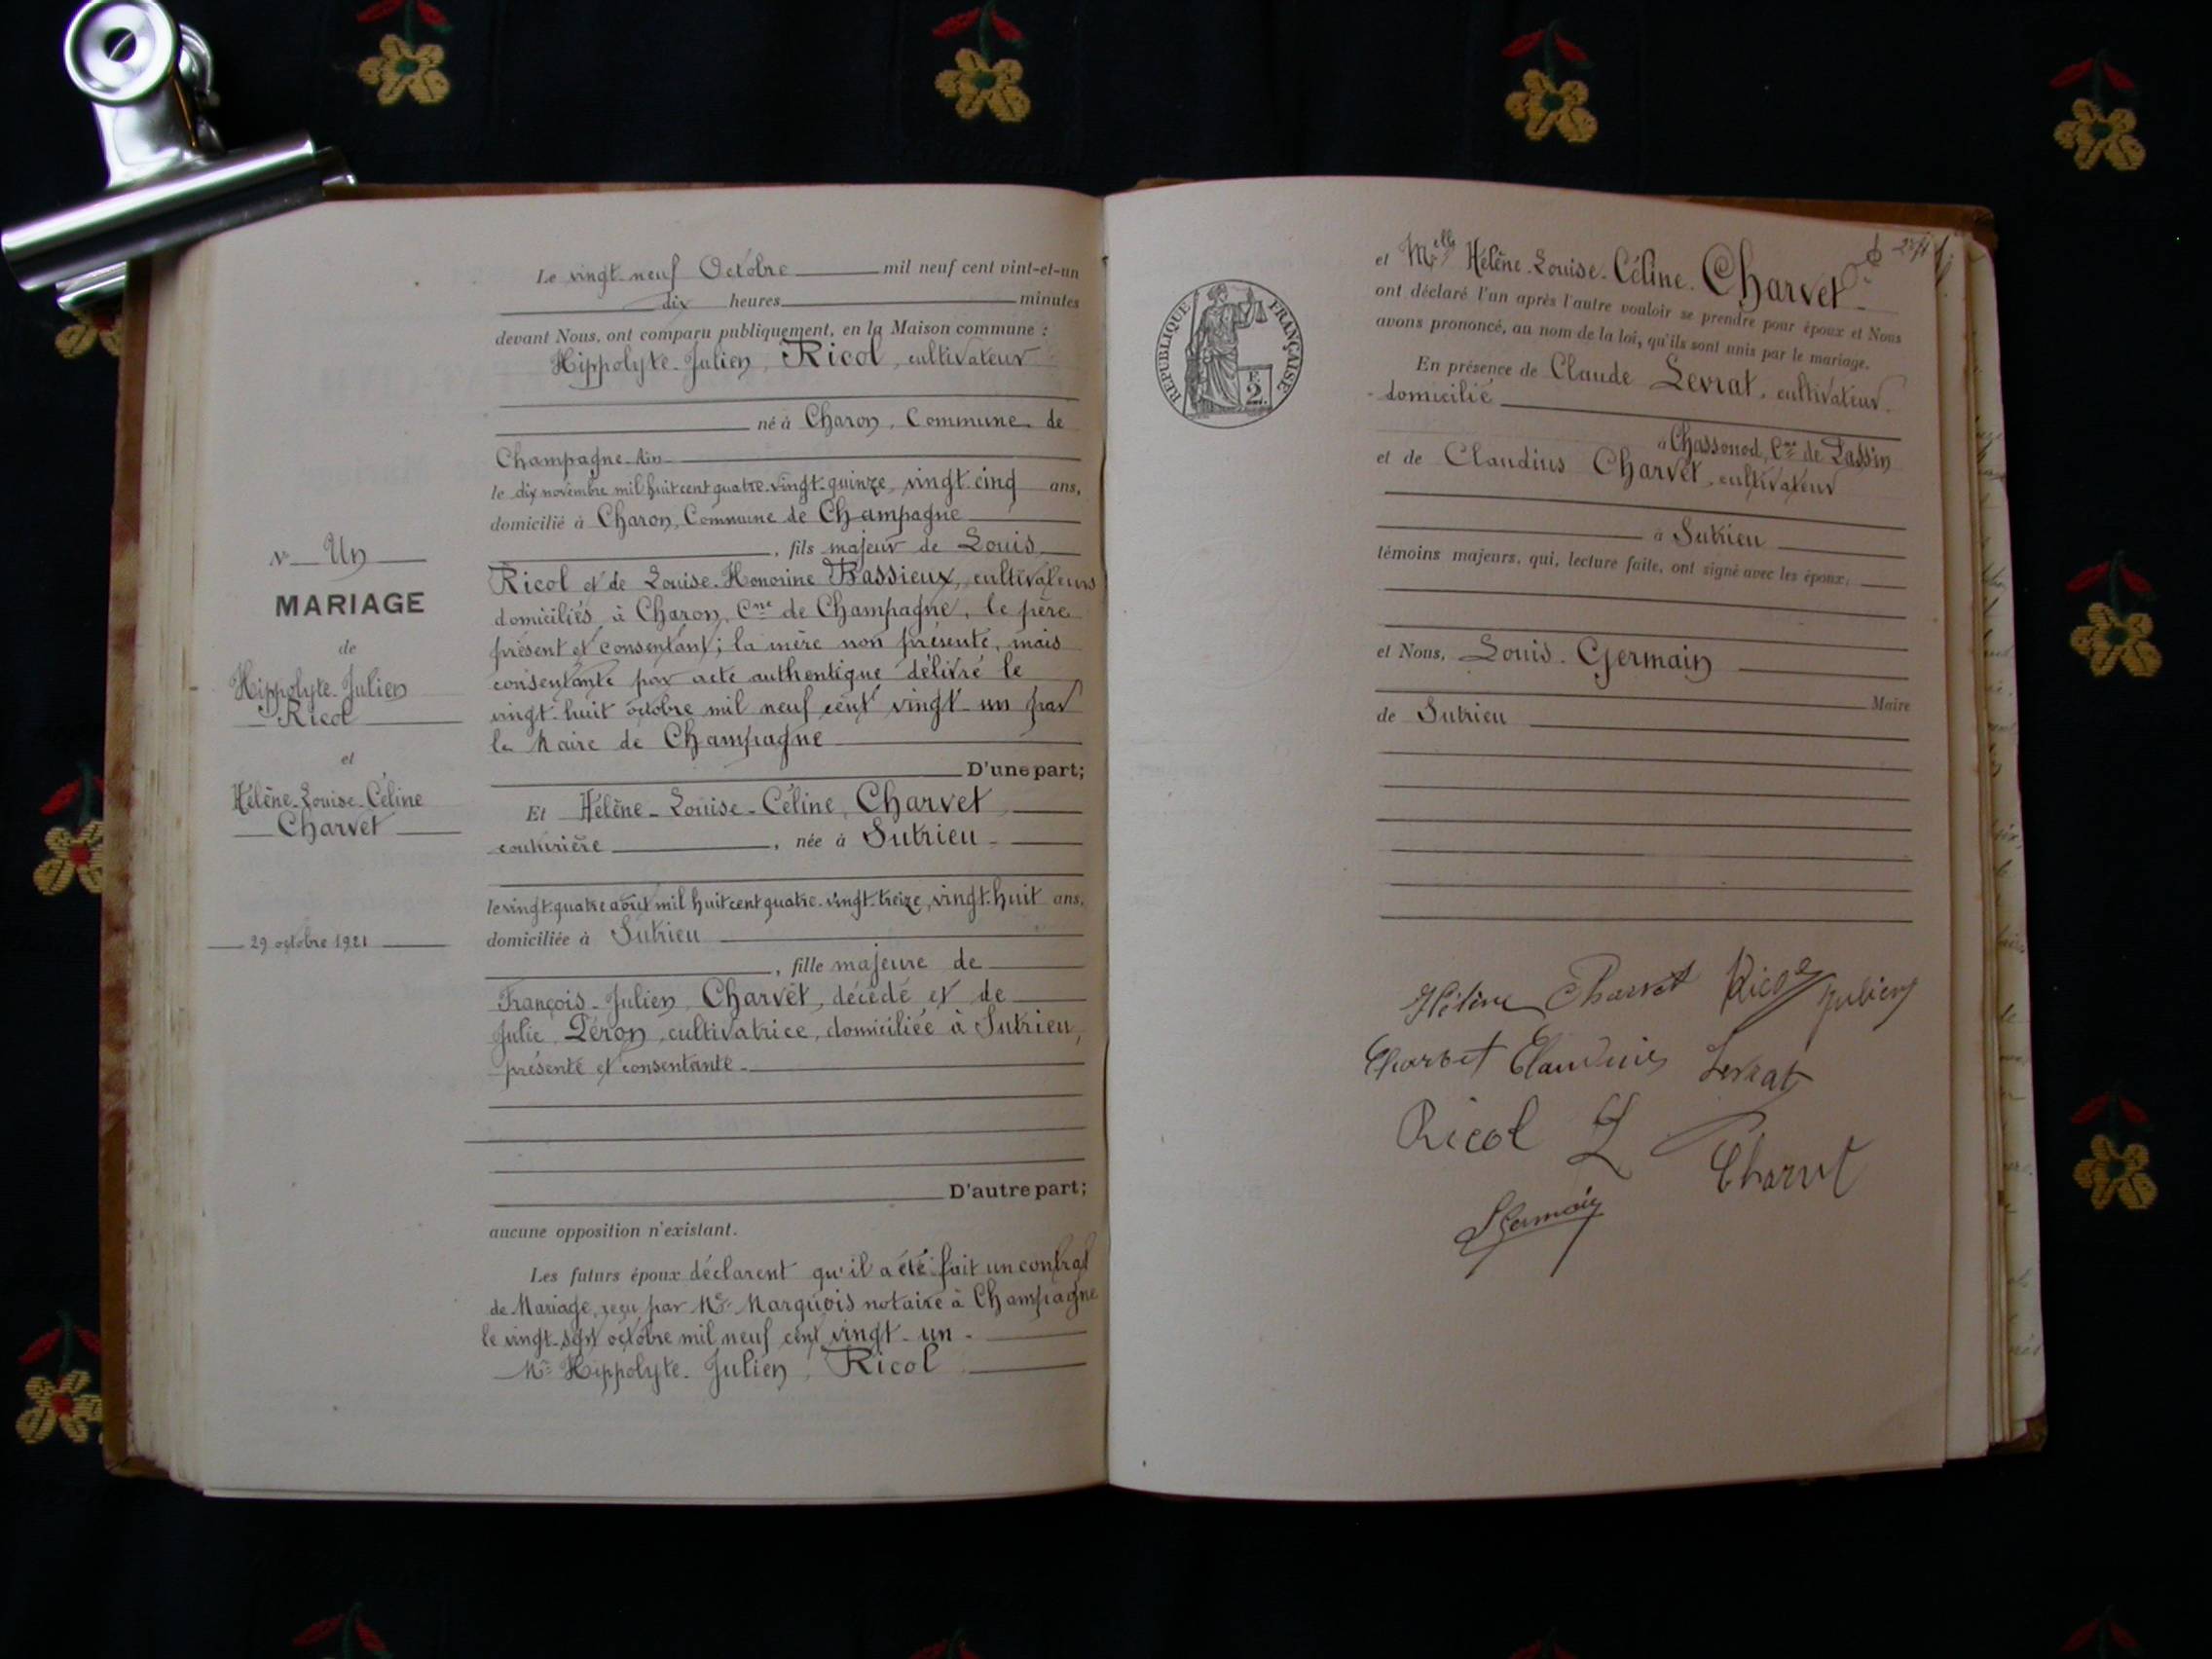 Le vingt-neuf Octobre mil neuf cent vint-et-un
dix heures minutes
devant Nous, ont comparu publiquement, en la Maison commune :
Hippolyte-Julien, Ricol, cultivateur
né à Charon, Commune de
Champagne-Ain
le dix novembre mil huit cent quatre-vingt-quinze, vingt-cinq ans,
domicilié à Charon, Commune de Champagne
, fils majeur de Louis
Ricol et de Louise-Honorine Bassieux, cultivateurs
domiciliés à Charon, Cne de Champagne, le père
présent et consentant; la mère non présente, mais
consentante par acte authentique délivré le
vingt-huit octobre mil neuf cent vingt-un par
le Maire de Champagne
D'une part;
Et Hélène-Louise-Céline, Charvet
couturière, née à Sutrieu
le vingt-quatre août mil huit cent quatre-vingt-treize, vingt-huit ans,
domiciliée à Sutrieu
, fille majeure de
François-Julien, Charvet, décédé et de
Julie Péron, cultivatrice, domiciliée à Sutrieu,
présente et consentante
D'autre part;
aucune opposition n'existant.
Les futurs époux déclarent qu'il a été fait un contrat
de Mariage, reçu par Me Marquois notaire à Champagne
le vingt-sept octobre mil neuf cent vingt-un
Mr Hippolyte-Julien, Ricol
No Un
MARIAGE
de
Hippolyte-Julien
Ricol
et
Hélène-Louise-Céline
Charvet
29 octobre 1921
REPUBLIQUE FRANÇAISE
F.
2.
et Melle Hélène-Louise-Céline-Charvet
ont déclaré l'un après l'autre vouloir se prendre pour époux et Nous
avons prononcé, au nom de la loi, qu'ils sont unis par le mariage.
En présence de Claude Levrat, cultivateur
domicilié
à Chassonod, Cne de Lassin
et de Claudius Charvet, cultivateur
à Sutrieu
témoins majeurs, qui, lecture faite, ont signé avec les époux,
et Nous, Louis-Germain
Maire
de Sutrieu
Hélène Charvet Ricol Julien
Charvet Claudius Levrat
Ricol L
Charvet
LGermain